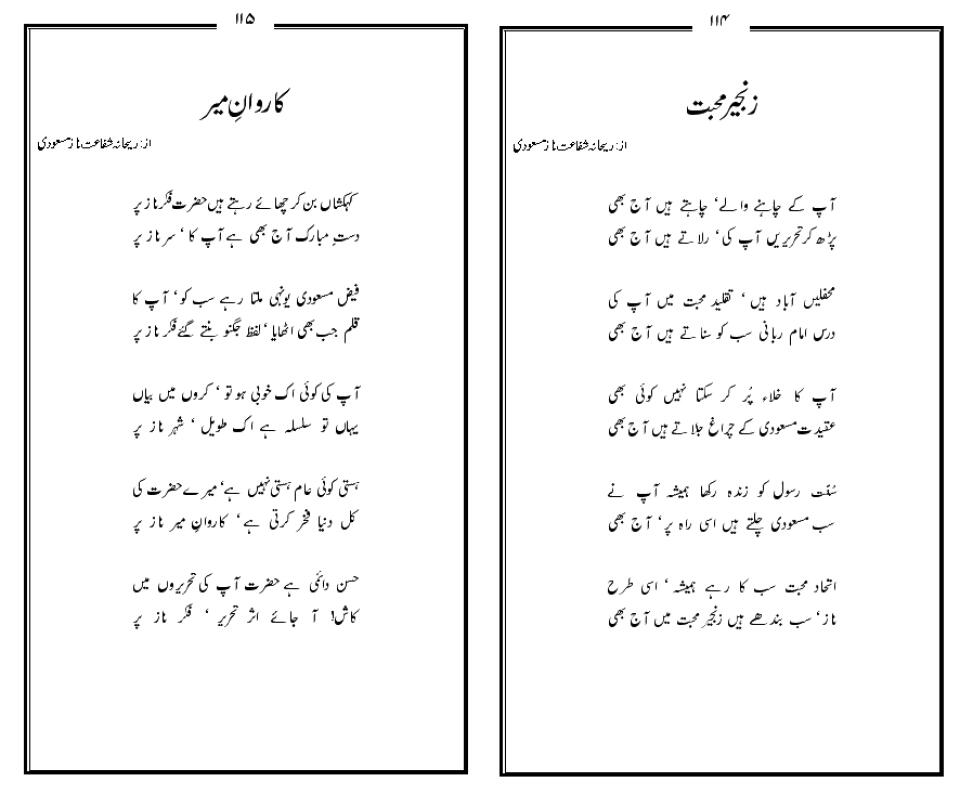 ۱۱۴
زنجیرِ محبت
از: ریحانہ شفاعت ناز مسعودی
آپ کے چاہنے والے‘ چاہتے ہیں آج بھی
پڑھ کر تحریریں آپ کی‘ رلاتے ہیں آج بھی
محفلیں آباد ہیں ‘ تقلید محبت میں آپ کی
درس امام ربانی سب کو سناتے ہیں آج بھی
آپ کا خلاء پُر کر سکتا نہیں کوئی بھی
عقیدت مسعودی کے چراغ جلاتے ہیں آج بھی
سُنّت رسول کو زندہ رکھا ہمیشہ آپ نے
سب مسعودی چلتے ہیں اسی راہ پر‘ آج بھی
اتحاد محبت سب کا رہے ہمیشہ ‘ اسی طرح
ناز‘ سب بندھے ہیں زنجیرِ محبت میں آج بھی
۱۱۵
کاروانِ میر
از: ریحانہ شفاعت ناز مسعودی
کہکشاں بن کر چھائے رہتے ہیں حضرت فکر ناز پر
دستِ مبارک آج بھی ہے آپ کا ‘ سر ناز پر
فیض مسعودی یونہی ملتا رہے سب کو‘ آپ کا
قلم جب بھی اٹھایا ‘ لفظ جگنو بنتے گئے فکر ناز پر
آپ کی کوئی اک خوبی ہو تو ‘ کروں میں بیاں
یہاں تو سلسلہ ہے اک طویل ‘ شہر ناز پر
ہستی کوئی عام ہستی نہیں ہے‘ میرے حضرت کی
کل دنیا فخر کرتی ہے‘ کاروانِ میر ناز پر
حسن دائی ہے حضرت آپ کی تحریروں میں
کاش! آ جائے اثر تحریر ‘ فکر ناز پر